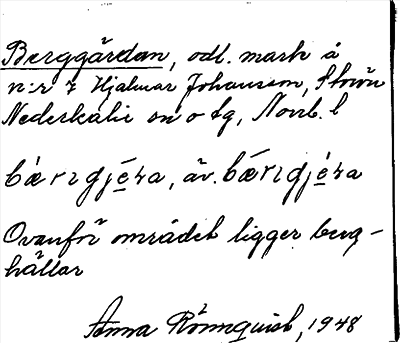 Berggärdan, odl. mark å
n:r 7 Hjalmar Johansson, Storön
Nederkalix sn o tg, Norrb. l
bæ̀rrgjé̱ra, äv. bǽrrgjé̱ra
Ovanför området ligger berg-
hällar
Anna Rönnquist, 1948